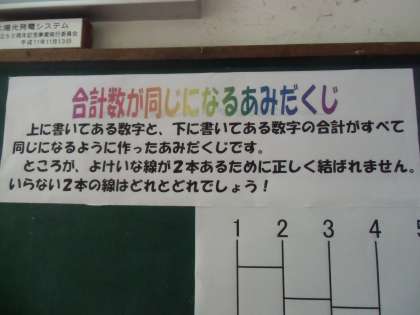 太陽光発電システム
平成11年11月13日
合計数が同じになるあみだくじ
上に書いてある数字と、下に書いてある数字の合計がすべて
同じになるように作ったあみだくじです。
ところが、よけいな線が2本あるために正しく結ばれません。
いらない2本の線はどれとどれでしょう！
1 2 3 4